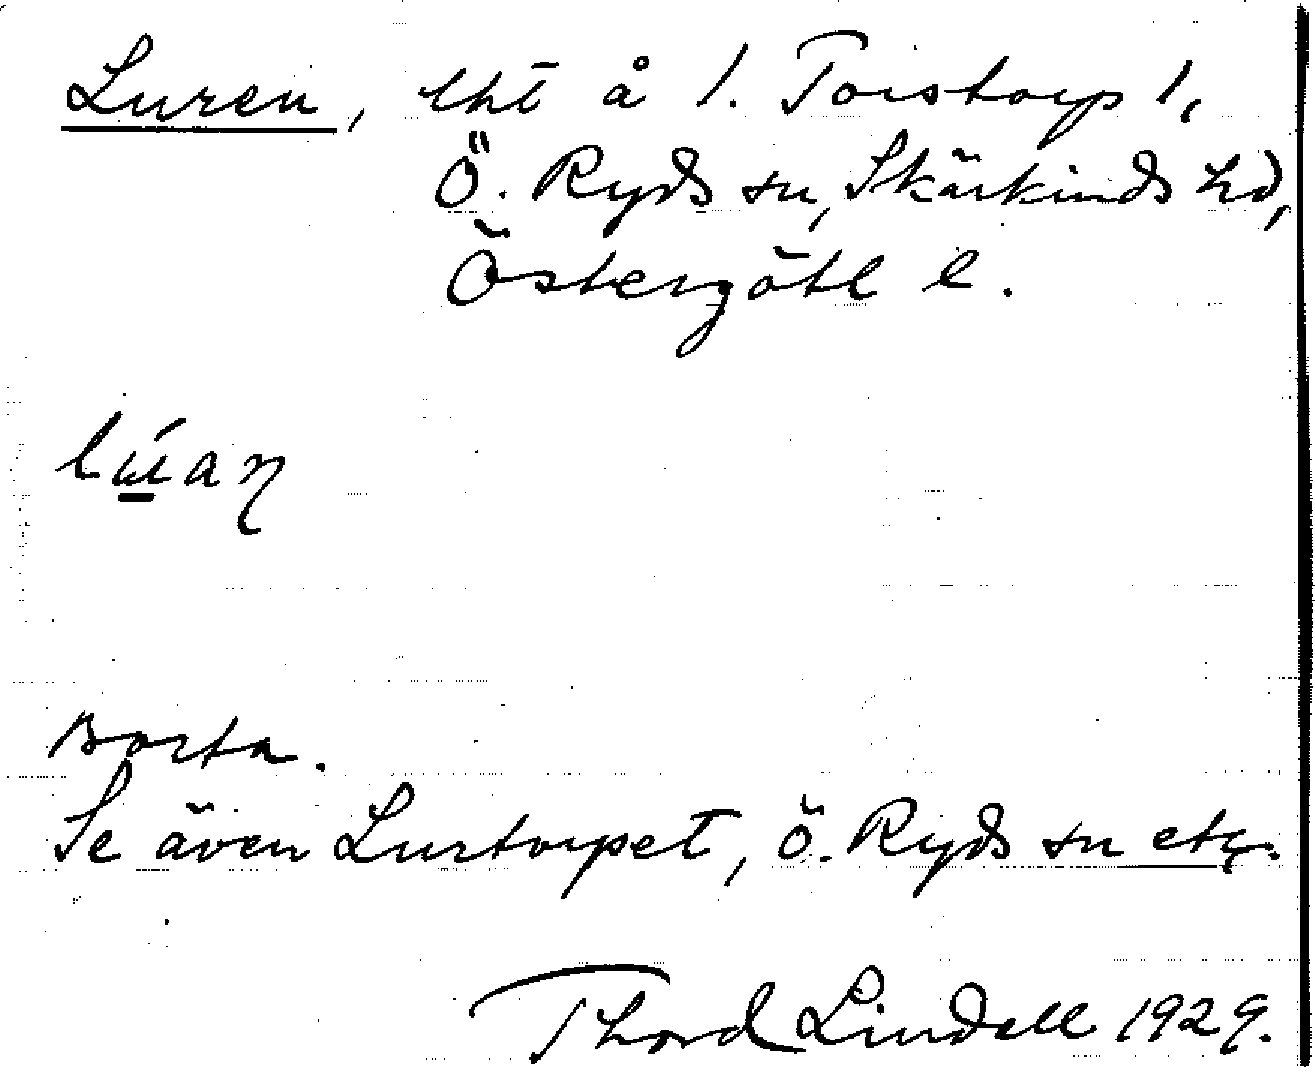 Luren, lht å 1. Torstorp 1,
Ö. Ryds sn, Skärkinds hd,
Östergötl l.
Borta.
Se även Lurtorpet, Ö. Ryds sn etc.
Thord Lindell 1929.